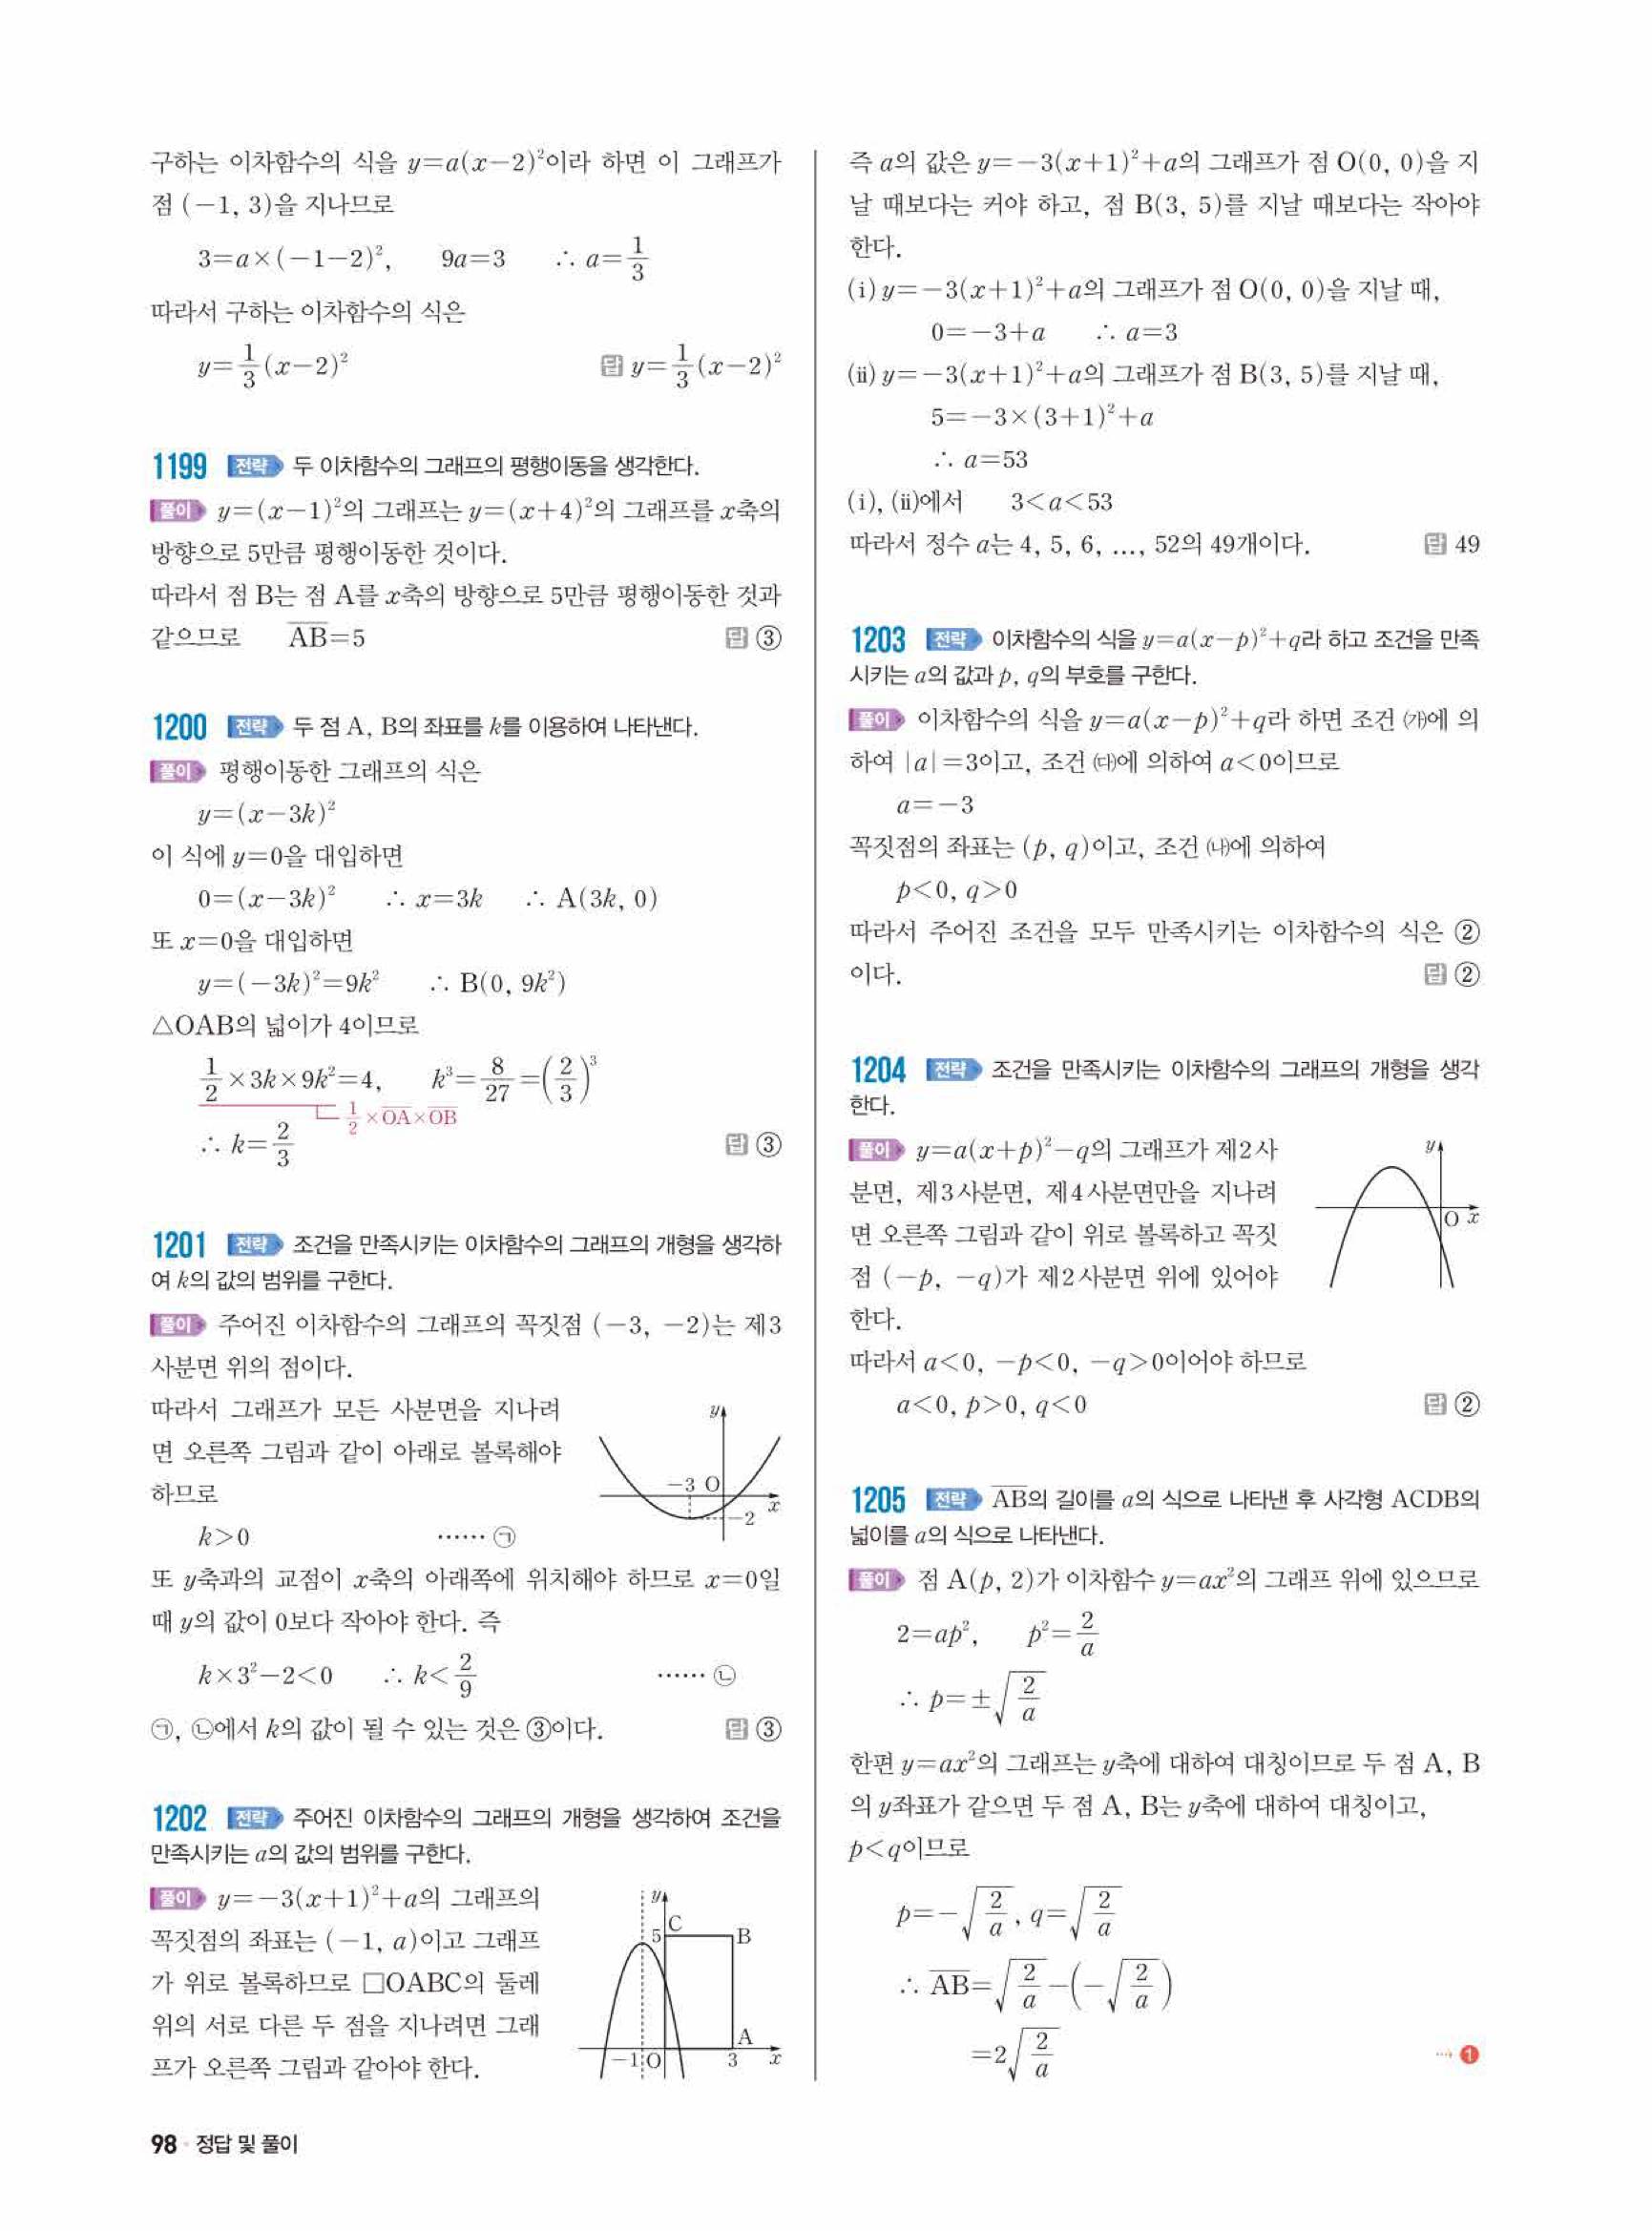 구하는 이차함수의 식을 y=a(x-2)²이라 하면 이 그래프가
점 (-1, 3)을 지나므로
3=a×(-1-2)², 9a=3 ∴ a=1/3
따라서 구하는 이차함수의 식은
y=1/3(x-2)² 답 y=1/3(x-2)²
1199 전략 두 이차함수의 그래프의 평행이동을 생각한다.
풀이 y=(x-1)²의 그래프는 y=(x+4)²의 그래프를 x축의
방향으로 5만큼 평행이동한 것이다.
따라서 점 B는 점 A를 x축의 방향으로 5만큼 평행이동한 것과
같으므로 A̅B̅=5 답 ③
1200 전략 두 점 A, B의 좌표를 k를 이용하여 나타낸다.
풀이 평행이동한 그래프의 식은
y=(x-3k)²
이 식에 y=0을 대입하면
0=(x-3k)² ∴ x=3k ∴ A(3k, 0)
또 x=0을 대입하면
y=(-3k)²=9k² ∴ B(0, 9k²)
△OAB의 넓이가 4이므로
1/2×3k×9k²=4, k³=8/27=(2/3)³
1/2×O̅A̅×O̅B̅
∴ k=2/3 답 ③
1201 전략 조건을 만족시키는 이차함수의 그래프의 개형을 생각하
여 k의 값의 범위를 구한다.
풀이 주어진 이차함수의 그래프의 꼭짓점 (-3, -2)는 제3
사분면 위의 점이다.
따라서 그래프가 모든 사분면을 지나려
면 오른쪽 그림과 같이 아래로 볼록해야
하므로
k>0 …… ㉠
y
-3 O
x
-2
또 y축과의 교점이 x축의 아래쪽에 위치해야 하므로 x=0일
때 y의 값이 0보다 작아야 한다. 즉
k×3²-2<0 ∴ k<2/9 …… ㉡
㉠, ㉡에서 k의 값이 될 수 있는 것은 ③이다. 답 ③
1202 전략 주어진 이차함수의 그래프의 개형을 생각하여 조건을
만족시키는 a의 값의 범위를 구한다.
풀이 y=-3(x+1)²+a의 그래프의
꼭짓점의 좌표는 (-1, a)이고 그래프
가 위로 볼록하므로 □OABC의 둘레
위의 서로 다른 두 점을 지나려면 그래
프가 오른쪽 그림과 같아야 한다.
y
C
5 B
A
-1 O 3 x
98 정답 및 풀이
즉 a의 값은 y=-3(x+1)²+a의 그래프가 점 O(0, 0)을 지
날 때보다는 커야 하고, 점 B(3, 5)를 지날 때보다는 작아야
한다.
(ⅰ) y=-3(x+1)²+a의 그래프가 점 O(0, 0)을 지날 때,
0=-3+a ∴ a=3
(ⅱ) y=-3(x+1)²+a의 그래프가 점 B(3, 5)를 지날 때,
5=-3×(3+1)²+a
∴ a=53
(ⅰ), (ⅱ)에서 3<a<53
따라서 정수 a는 4, 5, 6, …, 52의 49개이다. 답 49
1203 전략 이차함수의 식을 y=a(x-p)²+q라 하고 조건을 만족
시키는 a의 값과 p, q의 부호를 구한다.
풀이 이차함수의 식을 y=a(x-p)²+q라 하면 조건 ㈎에 의
하여 |a|=3이고, 조건 ㈐에 의하여 a<0이므로
a=-3
꼭짓점의 좌표는 (p, q)이고, 조건 ㈏에 의하여
p<0, q>0
따라서 주어진 조건을 모두 만족시키는 이차함수의 식은 ②
이다. 답 ②
1204 전략 조건을 만족시키는 이차함수의 그래프의 개형을 생각
한다.
풀이 y=a(x+p)²-q의 그래프가 제2사
분면, 제3사분면, 제4사분면만을 지나려
면 오른쪽 그림과 같이 위로 볼록하고 꼭짓
점 (-p, -q)가 제2사분면 위에 있어야
한다.
y
O x
따라서 a<0, -p<0, -q>0이어야 하므로
a<0, p>0, q<0 답 ②
1205 전략 A̅B̅의 길이를 a의 식으로 나타낸 후 사각형 ACDB의
넓이를 a의 식으로 나타낸다.
풀이 점 A(p, 2)가 이차함수 y=ax²의 그래프 위에 있으므로
2=ap², p²=2/a
∴ p=±√(2/a)
한편 y=ax²의 그래프는 y축에 대하여 대칭이므로 두 점 A, B
의 y좌표가 같으면 두 점 A, B는 y축에 대하여 대칭이고,
p<q이므로
p=-√(2/a), q=√(2/a)
∴ A̅B̅=√(2/a)-(-√(2/a))
=2√(2/a) … ❶